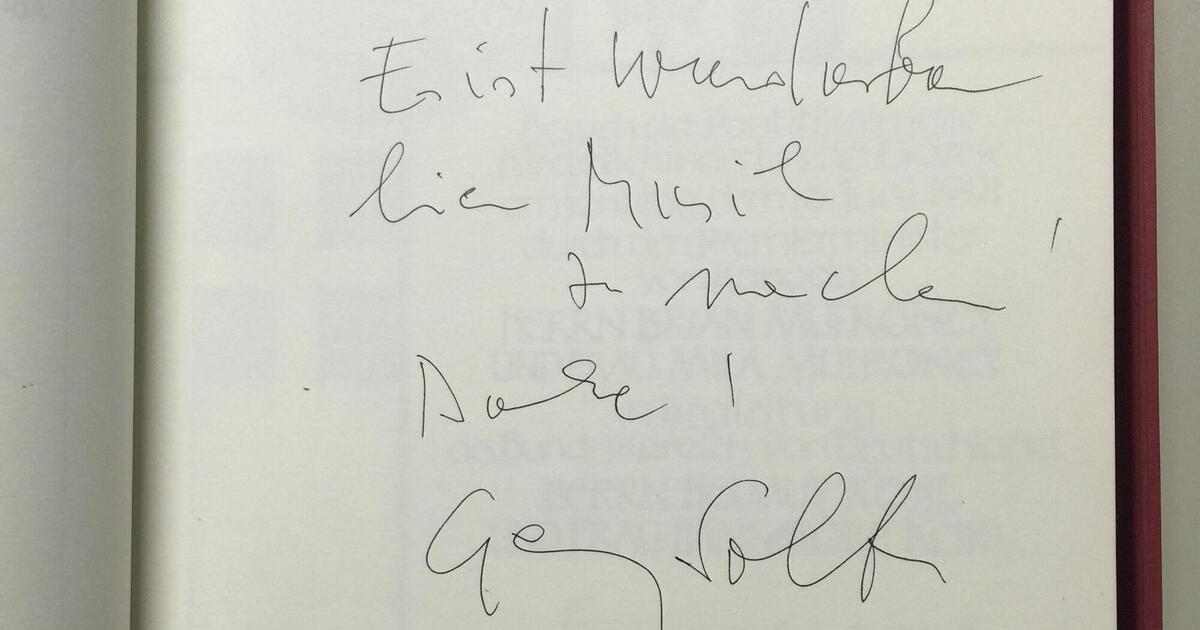 Es ist wunderbar
hier Musik
zu machen!
Danke!
Georg Solti